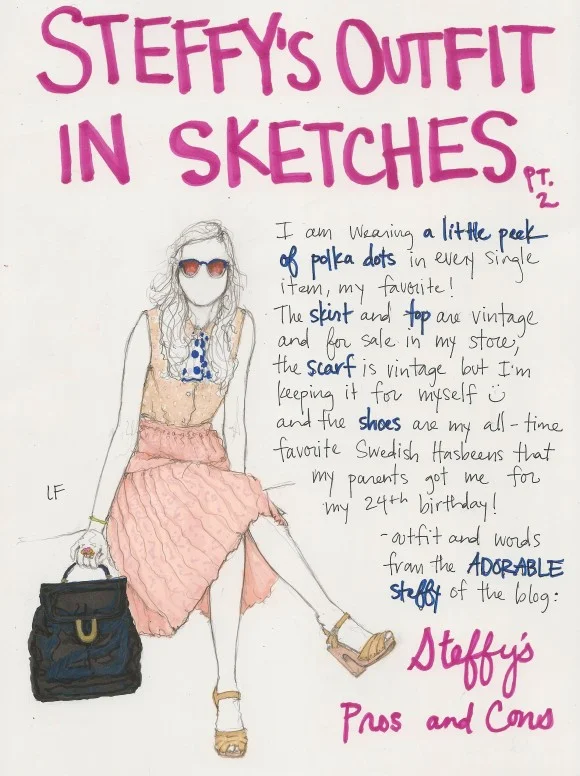 STEFFY'S OUTFIT
IN SKETCHES
PT.
2
I am wearing a little peek
of polka dots in every single
item, my favorite!
The skirt and top are vintage
and for sale in my store,
the scarf is vintage but I'm
keeping it for myself ☺
and the shoes are my all-time
favorite Swedish Hasbeens that
my parents got me for
my 24th birthday!
-outfit and words
from the ADORABLE
steffy of the blog:
Steffy's
Pros and Cons
LF